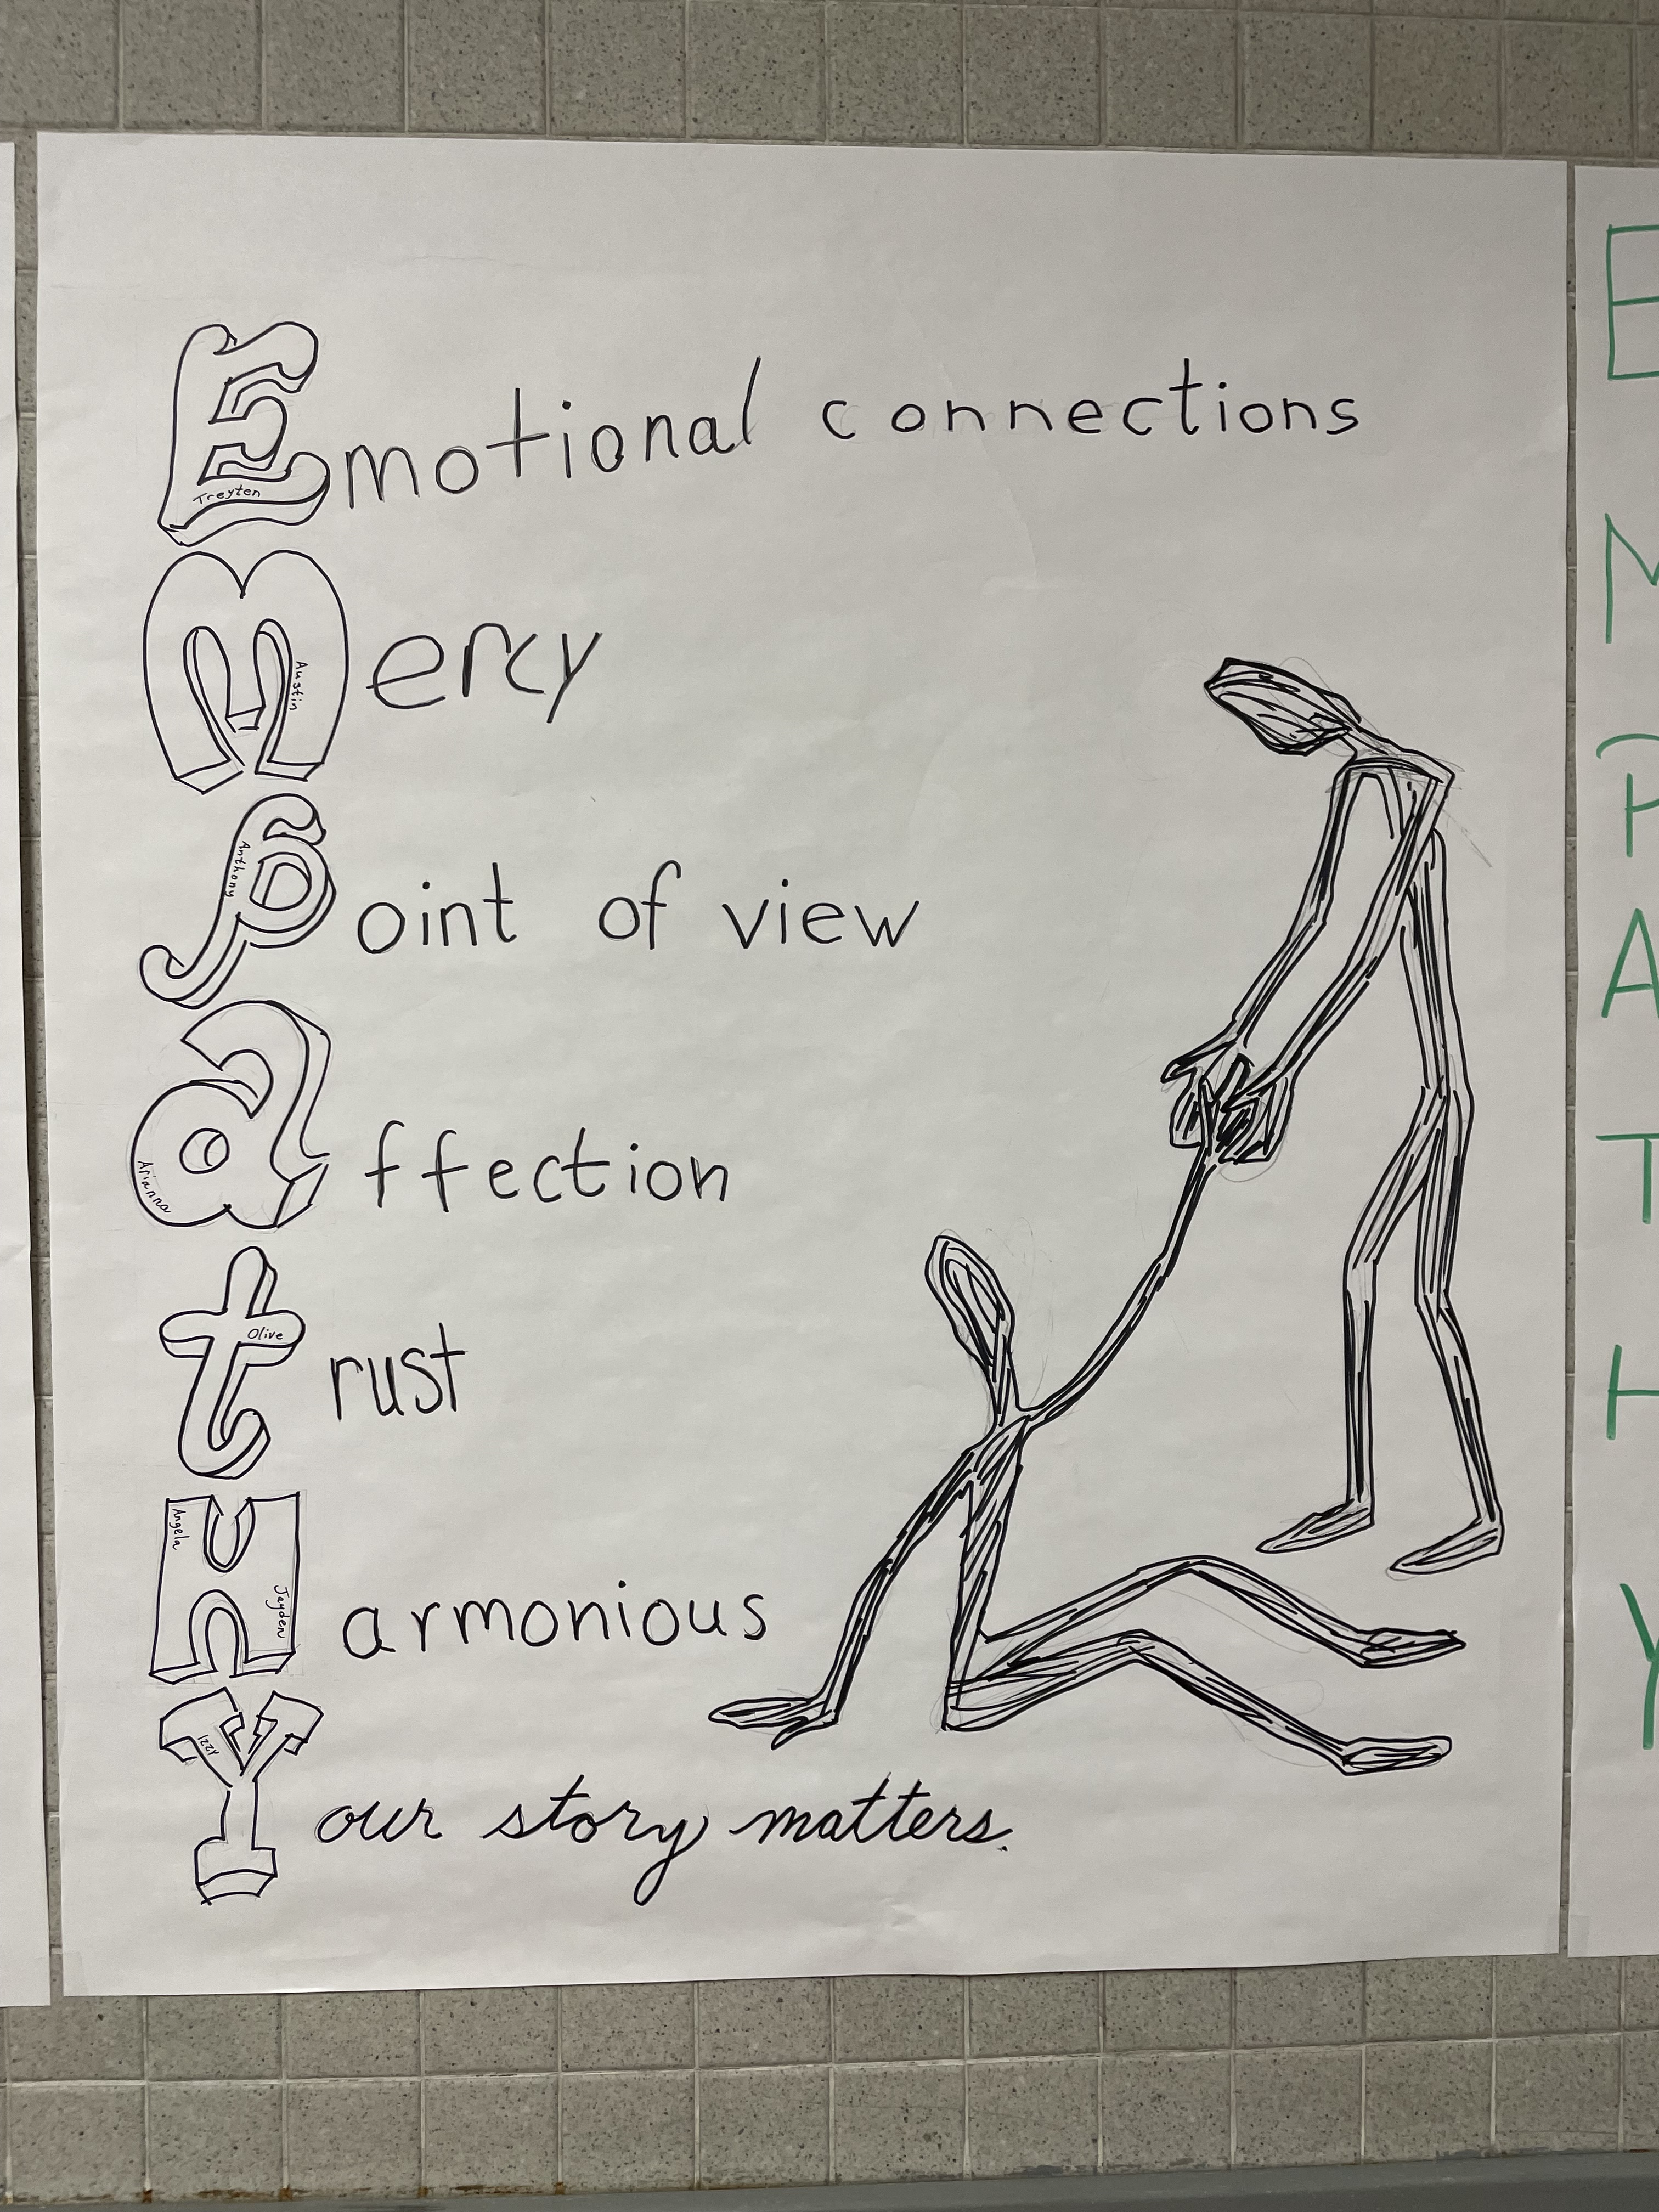 Emotional connections
Treyten
Mercy
Austin
Point of view
Anthony
affection
Arianna
trust
Olive
Harmonious
Angela
Jayden
Your story matters.
Izzy
E
M
P
A
T
H
Y